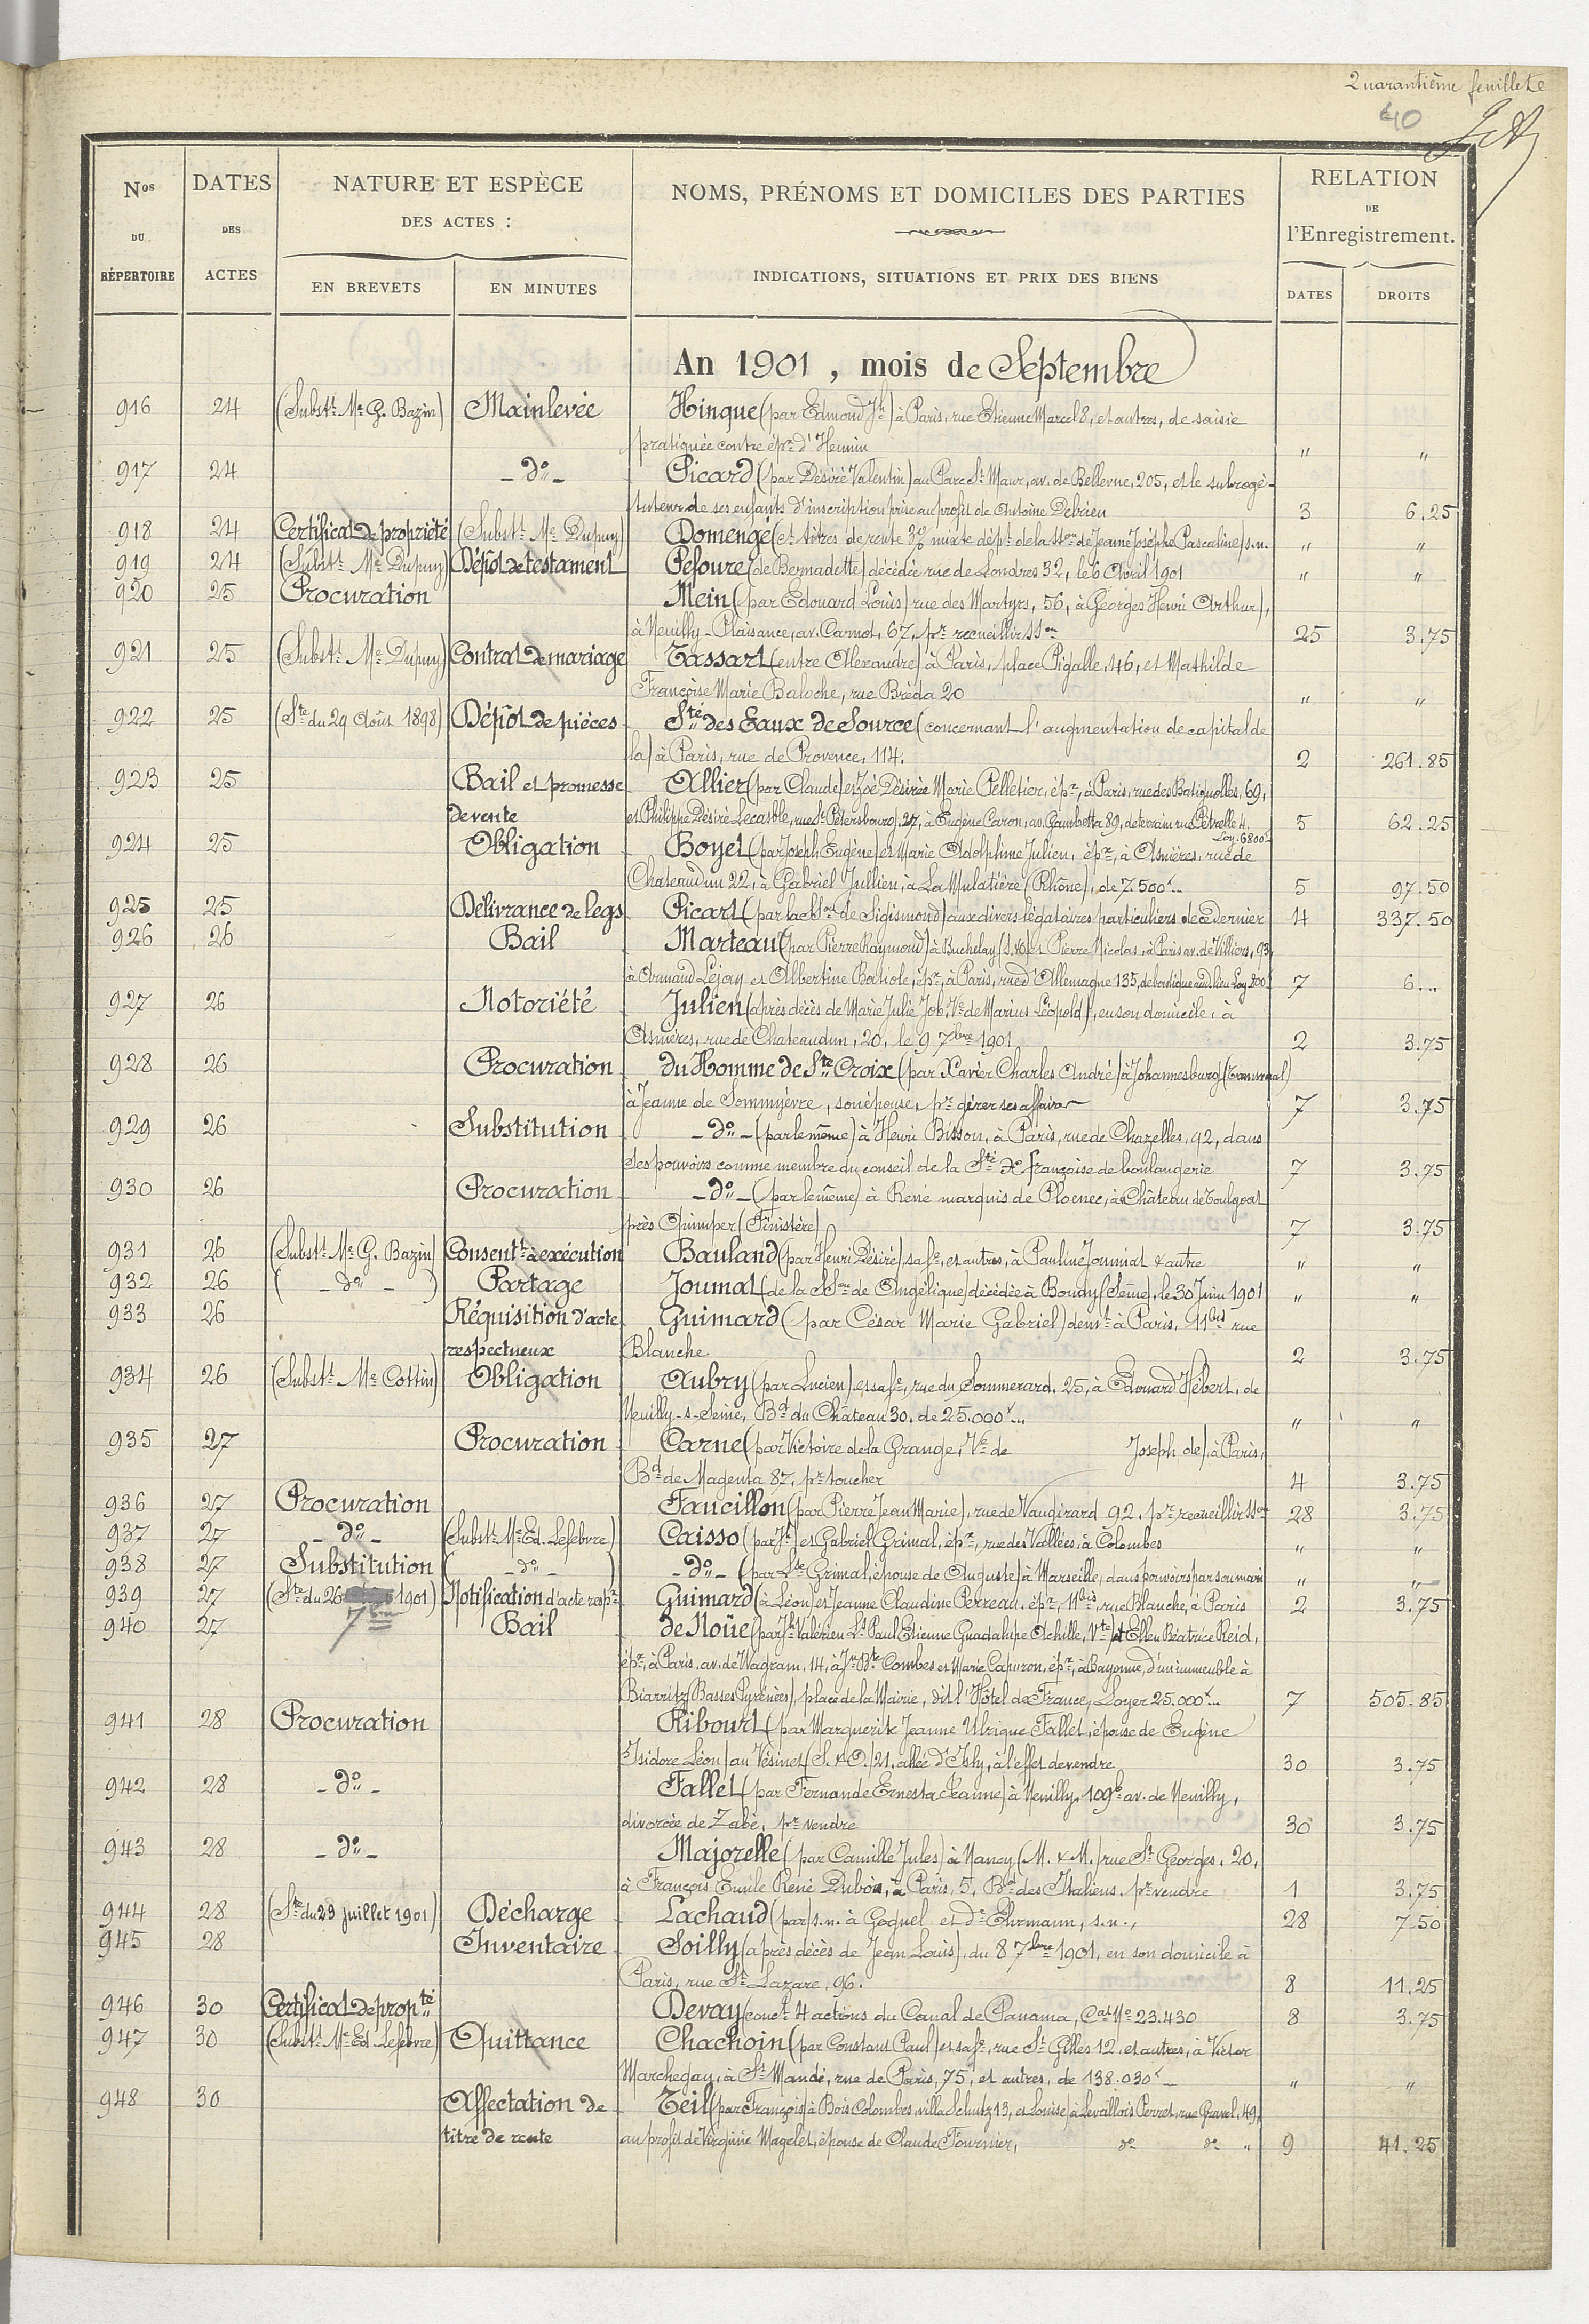 Quarantième feuillet
40
Nos DU RÉPERTOIRE
DATES DES ACTES
NATURE ET ESPÈCE DES ACTES :
EN BREVETS
EN MINUTES
NOMS, PRÉNOMS ET DOMICILES DES PARTIES
INDICATIONS, SITUATIONS ET PRIX DES BIENS
RELATION DE l'Enregistrement.
DATES
DROITS
An 1901, mois de Septembre
916 24 (Substt Me G. Bazin) Mainlevée Hinque (par Edmond Jh) à Paris, rue Etienne Marcel 8, et autres, de saisie
pratiquée contre épx d'Hemin " "
917 24 - do - Picard (par Désiré Valentin) au Parc St Maur, av. de Bellevue, 205, et le subrogé-
tuteur de ses enfants d'inscription prise au profit de Antoine Debrieu 3 6.25
918 24 Certificat de propriété (Substt Me Dupuy) Domengé (ct titres de rente 3% mixte dépt de la sson de Jeanne Josèphe Pascaline) s.n. " "
919 24 (Substt Me Dupuy) Dépôt de testament Pesoure (de Bernadette) décédée rue de Londres 32, le 6 Avril 1901 " "
920 25 Procuration Mein (par Edouard Louis) rue des Martyrs, 56, à Georges Henri Arthur),
à Neuilly-Plaisance, av. Carnot, 67, pr recueillir sson 25 3.75
921 25 (Substt Me Dupuy) Contrat de mariage Tassart (entre Alexandre) à Paris, place Pigalle, 46, et Mathilde
Françoise Marie Baloche, rue Bréda 20 " "
922 25 (Ste du 29 Août 1898) Dépôt de pièces Sté des Eaux de Source (concernant l'augmentation de capital de
la) à Paris, rue de Provence, 114. 2 261.85
923 25 Bail et promesse Allier (par Claude) et Zoé Désirée Marie Pelletier, épx, à Paris, rue des Batignolles, 69,
de vente et Philippe Désiré Lecasble, rue St Pétersbourg, 27, à Eugène Caron, av. Gambetta 89, de terrain rue Pétrelle 4. 5 62.25
Loy. 6800f
924 25 Obligation Boyet (par Joseph Eugène) et Marie Adolphine Julien, épx, à Asnières, rue de
Chateaudun 22, à Gabriel Jullien, à La Mulatière (Rhône), de 7.500f.. 5 97.50
925 25 Délivrance de legs Picart (par la sson de Sigismond) aux divers légataires particuliers de ce dernier 4 337.50
926 26 Bail Marteau (par Pierre Raymond) à Buchelay (S.&O) et Pierre Nicolas, à Paris av. de Villiers, 93,
à Armand Lejay et Albertine Batiole, épx, à Paris, rue d'Allemagne 135, de boutique audt lieu Loy. 800f 7 6...
927 26 Notoriété Julien (après décès de Marie Julie Job, Ve de Marius Léopold), en son domicile, à
Asnières, rue de Chateaudun, 20, le 9 7bre 1901 2 3.75
928 26 Procuration du Homme de Ste Croix (par Xavier Charles André) à Johannesburg (Transvaal)
à Jeanne de Sommyèvre, son épouse, pr gérer ses affaires 7 3.75
929 26 Substitution - do - (par le même) à Henri Bisson, à Paris, rue de Chazelles, 92, dans
ses pouvoirs comme membre du conseil de la Sté Xe française de boulangerie 7 3.75
930 26 Procuration - do - (par le même) à René marquis de Ploenec, à Château de Toulgoat
près Quimper (Finistère) 7 3.75
931 26 (Substt Me G. Bazin) Consentt à exécution Bauland (par Henri Désiré) sa fe, et autres, à Pauline Joumat & autre " "
932 26 ( - do - ) Partage Joumat (de la sson de Angélique) décédée à Bondy (Seine), le 30 Juin 1901 " "
933 26 Réquisition d'acte Guimard (par César Marie Gabriel) demt à Paris, 11bis rue
respectueux Blanche. 2 3.75
934 26 (Substt Me Cottin) Obligation Aubry (par Lucien) et sa fe, rue du Sommerard, 25, à Edouard Hébert, de
Neuilly-s-Seine, Bd du Château 30, de 25.000f... " "
935 27 Procuration Carne (par Victoire de la Grange, Ve de Joseph de), à Paris,
Bd de Magenta 87, pr toucher 4 3.75
936 27 Procuration Faucillon (par Pierre Jean Marie), rue de Vaugirard 92, pr recueillir sson 28 3.75
937 27 - do - (Substt Me Ed. Lefebvre) Caisso (par Jh) et Gabriel Grimal, épx, rue des Vallées, à Colombes " "
938 27 Substitution ( - do - - do - (par Lse Grimal, épouse de Auguste) à Marseille, dans pouvoirs par son mari " "
939 27 (Ste du 26 7bre 1901) Notification d'acte respx Guimard (à Léon) et Jeanne Claudine Perreau, épx, 11bis, rue Blanche, à Paris 2 3.75
940 27 Bail de Noüe (par Jh Valérien Ls Paul Etienne Guadalupe Achille, Vte) et Ellen Béatrice Reid,
épx, à Paris, av. de Wagram, 14, à Jn Bte Combes et Marie Capuron, épx, à Bayonne, d'un immeuble à
Biarritz (Basses Pyrénées), place de la Mairie, dit l'Hôtel de France, Loyer 25.000f... 7 505.85
941 28 Procuration Ribourt (par Marguerite Jeanne Ulrique Fallet, épouse de Eugène
Isidore Léon) au Vésinet (S. & O.) 21, allée d'Isly, à l'effet de vendre 30 3.75
942 28 - do - Fallet (par Fernande Ernesta Jeanne) à Neuilly, 109b av. de Neuilly,
divorcée de Zabé, pr vendre 30 3.75
943 28 - do - Majorelle (par Camille Jules) à Nancy (M. & M.) rue St Georges, 20,
à François Emile René Dubois, à Paris, 5, Bd des Italiens, pr vendre 1 3.75
944 28 (Ste du 23 Juillet 1901) Décharge Lachaud (par) s.n. à Goguel et de Ehrmann, s.n., 28 7.50
945 28 Inventaire Soilly (après décès de Jean Louis), du 8 7bre 1901, en son domicile à
Paris, rue St Lazare, 96. 8 11.25
946 30 Certificat de propté Devay (conct 4 actions du Canal de Panama, Cat No 23.430 8 3.75
947 30 (Substt Me Ed. Lefebvre) Quittance Chachoin (par Constant Paul) et sa fe, rue St Gilles 12, et autres, à Victor
Marchegay, à St Mandé, rue de Paris, 75, et autres, de 138.030f " "
948 30 Affectation de Teil (par François) à Bois Colombes, villa Schutz 13, et Louise) à Levallois Perret, rue Gravel, 49,
titre de rente au profit de Virginie Magelet, épouse de Claude Fournier, do do " 9 41.25